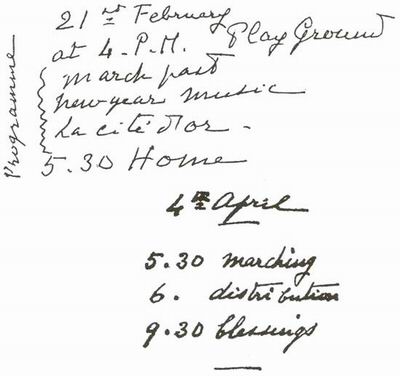 21st February
at 4. P.M. Play Ground
Programme
march past
new year music
La cité d'or -
5.30 Home
4th April
5.30 marching
6. distribution
9.30 blessings